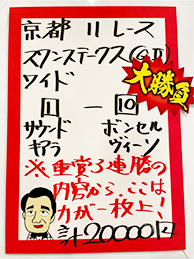 京都 11レース
スワンステークス(GⅡ)
ワイド
大勝負
1 ー 10
サウンド ボンセル
キアラ ヴィーソ
※重賞3連勝の
内容から、ここは
力が一枚上!
計20000円